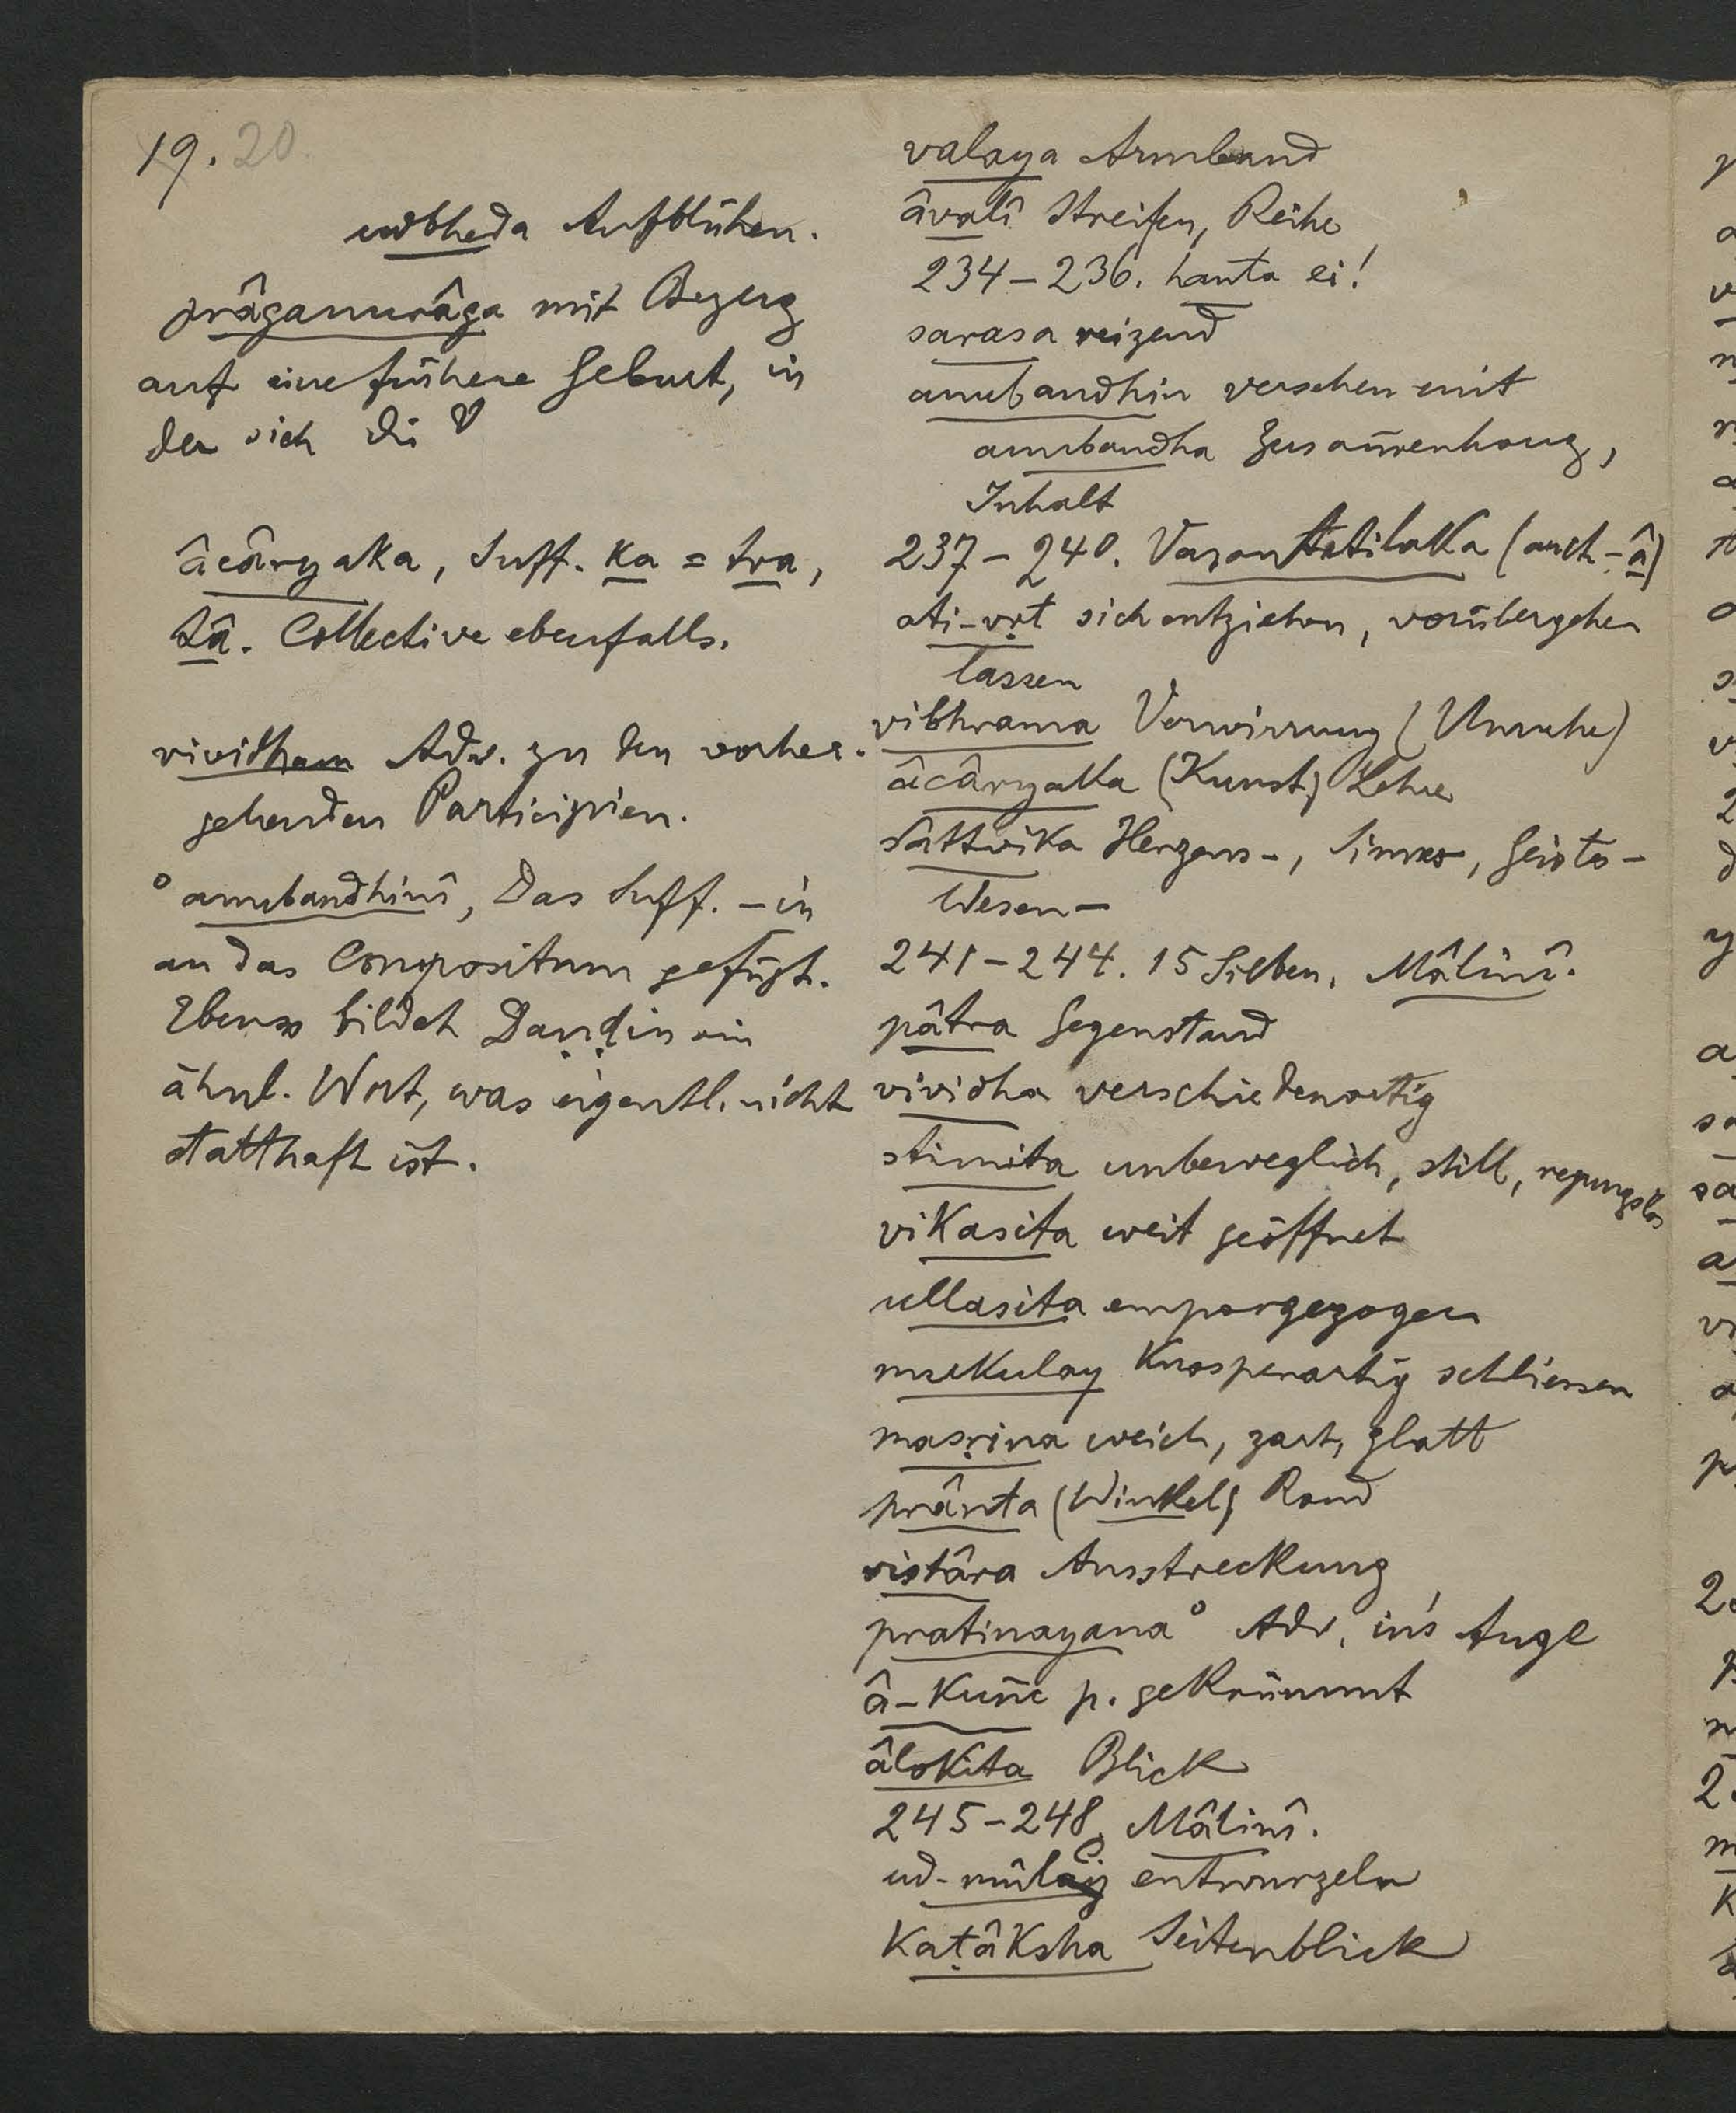 19. 20.
udbheda Aufblühen.
prâganurâga mit Bezug
auf eine frühere Geburt, in
der sich die ♡
âcâryaka, Suff. ka = tva,
tâ. Collective ebenfalls.
vividham Adv. zu den vorher-
gehenden Participien.
°anubandhinî, Das Suff. -in
an das Compositum gefügt.
Ebenso bildet Daṇḍin ein
ähnl. Wort, was eigentl. nicht
statthaft ist.
valaya Armband
âvalî Streifen, Reihe
234-236. hanta ei!
sarasa reizend
anubandhin versehen mit
anubandha Zusam̄enhang,
Inhalt
237-240. Vasantatilaka (auch -â)
ati-vṛt sich entziehen, vorübergehen
lassen
vibhrama Verwirrung (Unruhe)
âcâryaka (Kunst) Lehre
sâttvika Herzens-, Sinnes-, Geistes-
Wesen-
241-244. 15 Silben. Mâlinî.
pâtra Gegenstand
vividha verschiedenartig
stimita unbeweglich, still, regungslos
vikasita weit geöffnet
ullasita emporgezogen
mukulay knospenartig schliessen
masṛina weich, zart, glatt
prânta (Winkel) Rand
vistâra Ausstreckung
pratinayana° Adv. in's Auge
â-kuñc p. gekrümmt
âlokita Blick
245-248. Mâlinî.
ud-mûlay entwurzeln
kaṭâksha Seitenblick